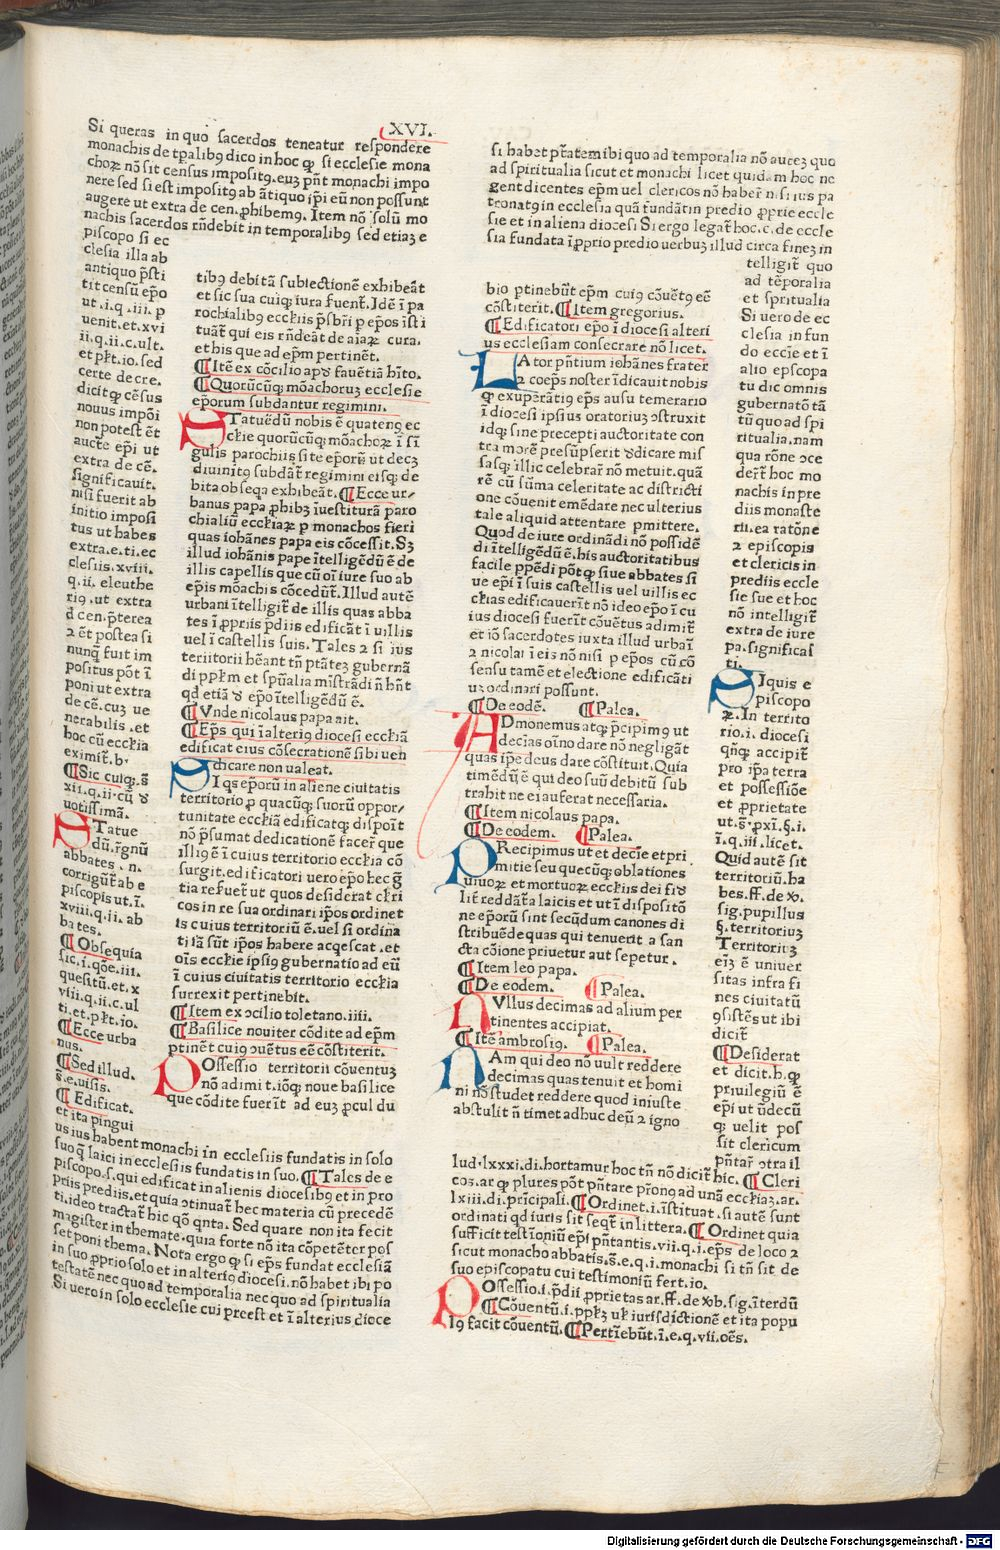 XVI.
Si queras in quo sacerdos teneatur respondere
monachis de tp̄alibꝰ dico in hoc ꝙ si ecclesie mona
choꝝ nō sit census impositꝰ. euꝫ pn̄t monachi impo
nere sed si est impositꝰ ab ātiquo ip̄i eū non possunt
augere ut extra de cen. ꝓhibemꝰ. Item nō solū mo
nachis sacerdos rn̄debit in temporalibꝰ sed etiaꝫ e
piscopo si ec
clesia illa ab
antiquo p̄sti
tit censū ep̄o
ut .i.q.iii. p
uenit. et .xvi
ii.q.ii.c.ult.
et pl̄t.io. sed
certe de cre.
dicit ꝙ cēsus
nouus impōi
non potest ēt
aucte ep̄i ut
extra de cē.
significauit.
nisi fuerit ab
initio imposi
tus ut habes
extra.e.ti. ec
clesiis. xviii.
q.ii. eleuthe
riꝰ .ut extra
d cen. p̄terea
⁊ ēt postea si
nunqͣ fuit im
positus pōt ī
poni ut extra
de cē. cuꝫ ue
nerabilis .et
hoc cū eccł̄ia
eximit̄. b.
¶ Sic cuiqꝫ. s̄
xii.q.ii. cū ꝺ
uotissimā.
STatue
dū. r̄gnū
abbates . n.
corrigūt̄ ab e
piscopis ut .ī.
xviii.q.ii. ab
bates.
¶ Obsequia
sic .i.q̄oe.iii.
quesitū. et .x
viii.q.ii.c.ul
ti. et. pl̄t.io.
¶ Ecce urba
nus.
¶ Sed illud.
s̄.e. uisis.
¶ Edificat.
et ita pingui
us ius habent monachi in ecclesiis fundatis in solo
suo qͣ laici in ecclesiis fundatis in suo. ¶ Tales de e
piscopo .s. qui edificat in alienis diocesibꝰ et in pro
priis prediis. et quia ↄtinuat̄ hec materia cū precedē
ti. ideo tractat̄ hic q̄o qnta. Sed quare non ita fecit
magister in themate. quia forte nō ita cōpetēter pos
set poni thema. Nota ergo ꝙ si ep̄s fundat ecclesiā
in suo ꝓprio solo et in alteriꝰ diocesi. nō habet ibi po
testatē nec quo ad temporalia nec quo ad spiritualia
Si uero in solo ecclesie cui preest et ī alterius dioce
tibꝰ debitā subiectionē exhibeāt
et sic sua cuiqꝫ iura fuēnt̄. Idē ī pa
rochialibꝰ eccł̄iis p̄sbr̄i p epos īsti
tuāt̄ qui eis rn̄deāt de aīaꝝ cura.
et his que ad ep̄m pertinēt.
¶ Itē ex cōcilio apꝺ fauētiā hīto.
¶ Quorūcūqꝫ mōachoruꝫ ecclesie
ep̄orum subdantur regimini.
STatuēdū nobis ē quatenꝰ ec
cł̄ie quorūcūqꝫ mōachoꝝ ī sī
gulis parochiis site ep̄orū ut decꝫ
diuinitꝰ subdāt̄ regimini eisqꝫ de
bita obseqa exhibeāt. ¶ Ecce ur⸗
banus papa ꝓhibꝫ īuestiturā paro
chialiū eccł̄iaꝝ p monachos fieri
quas iohānes papa eis cōcessit. Sꝫ
illud iohānis pape ītelligēdū ē de
illis capellis que cū oī iure suo ab
ep̄is mōachis cōcedūt̄. Illud autē
urbani ītelligit̄ de illis quas abba
tes ī ꝓpriis p̄diis edificāt ī uillis
uel ī castellis suis. Tales ⁊ si ius
teriitorii hēant tn̄ ptātēꝫ gubernā
di ppl̄m et spūalia mīstrādi n̄ hn̄t
qd etiā ꝺ ep̄o ītelligēdū ē.
¶ Vnde nicolaus papa ait.
¶ Ep̄s qui ī alteriꝰ diocesi eccł̄iā
edificat eius cōsecrationē sibi uen
dicare non ualeat.
SI qs ep̄orū in aliene ciuitatis
territorio ꝓ quacūqꝫ suorū oppor⸗
tunitate eccł̄iā edificat qꝫ dispoīt
nō p̄sumat dedicationē facer̄ que
illiꝰ ē ī cuius territorio eccł̄ia cō
surgit. edificatori uero ep̄o hec gr̄
tia refuet̄ ut quos desiderat cł̄ri
cos in re sua ordinari ip̄os ordinet
is cuius territoriū ē. uel si ordina
ti iā sūt ip̄os habere acqescat. et
oīs eccł̄ie ipsiꝰ gubernatio ad eū
ī cuius ciuitatis territorio eccł̄ia
surrexit pertinebit.
¶ Item ex ↄcilio toletano .iiii.
¶ Basilice nouiter cōdite ad ep̄m
ptinēt cuiꝰ ↄuētus eē cōstiterit.
POssessio territorii cōuentuꝫ
nō adimit .iōqꝫ noue basilice
que cōdite fuerīt ad euꝫ ꝓcul du
si habet ptatem ibi quo ad temporalia nō auteꝫ quo
ad spiritualia sicut et monachi licet quidam hoc ne
gent dicentes ep̄m uel clericos nō haber̄ nisi ius pa
tronatꝰ in ecclesia quā fundāt in predio ꝓprie eccle
sie et in aliena diocesi Si ergo legat̄ hoc .c. de eccle
sia fundata ī ꝓprio predio uerbuꝫ illud circa fineꝫ in
telligit̄ quo
ad tēporalia
et spritualia
Si uero de ec
clesia in fun
do eccīe et ī
alio episcopa
tu dic omnis
gubernatō tā
tū quo ad spi
ritualia. nam
qua rōne ↄce
dert̄ hoc mo
nachis in pre
diis monaste
rii. ea ratōne
⁊ episcopis
et clericis in
prediis eccle
sie sue et hoc
nō intelligit̄
extra de iure
pa. significas
ti.
SI quis e
piscopo
ꝝ. In territo
rio .i. diocesi
qn̄qꝫ accipit̄
pro ip̄a terra
et possessiōe
et ꝓprietate
ut .s̄. pxī.§.i.
ī.q.iii. licet.
Quid autē sit
territoriū. ha
bes .ff. de ꝟ.
sig. pupillus
§. territoriuꝫ
Territoriuꝫ
eīꝫ ē uniuer
sitas infra fi
nes ciuitatū
ꝯsistēs ut ibi
dicit̄
¶ Desiderat
et dicit .h. ꝙ
priuilegiū ē
ep̄i ut ūdecū
qꝫ uelit pos
sit clericum
pn̄tar̄ ↄtra il
lud .lxxxi. di. hortamur hoc tn̄ nō dicit̄ hic. ¶ Cleri
cos .ar. ꝙ plures pōt pn̄tare pr̄onꝰ ad unā eccł̄iaꝫ .ar.
lxiii. di. prīcipali. ¶ Ordinet .i. īstituat. si autē sunt
ordinati qd iuris sit seqt̄ in littera. ¶ Ordinet quia
sufficit testīoniū ep̄i pn̄tantis. vii.q.i. ep̄s de loco ⁊
sicut monacho abbatis .s̄.e.q.i. monachi si tn̄ sit de
suo episcopatu cui testimoniū fert .io.
POssessio .i. p̄dii ꝓprietas ar. ff. de ꝟb. sig. īterdū
¶ Cōuentū .i. ppl̄ꝫ ul̄ iurisdictionē et ita popu
lꝰ facit cōuentū. ¶ Pertīebūt .ī.e.q.vii. oēs.
bio ptinebūt ep̄m cuiꝰ cōuētꝰ eē
cōstiterit. ¶ Item gregorius.
¶ Edificatori ep̄o ī diocesi alteri
us ecclesiam consecrare nō licet.
LAtor pn̄tium iohānes frater
⁊ coep̄s noster īdicauit nobis
ꝙ exuperātiꝰ ep̄s ausu temerario
ī diocesi ipsius oratoriuꝫ ↄstruxit
idqꝫ sine precepti auctoritate con
tra morē presūpserit ꝺdicare mis
sasqꝫ illic celebrar̄ nō metuit. quā
rē cū sūma celeritate ac districti
one cōuenit emēdare nec ulterius
tale aliquid attentare pmittere.
Quod de iure ordinādi nō possidē
di ītelligēdū ē. his auctoritatibus
facile ppēdi pōt ꝙ siue abbates si
ue ep̄i ī suis castellis uel uillis ec
cł̄ias edificauerīt nō ideo ep̄o ī cu
ius diocesi fuerīt cōuētus adimit̄
et iō sacerdotes iuxta illud urbaī
⁊ nicolai ī eis nō nisi p epos cū cō
sensu tamē et electione edificāti
uꝫ ordinari possunt.
¶ De eodē. ¶ Palea.
ADmonemus atqꝫ p̄cipimꝰ ut
decīas oīno dare nō negligāt
quas ip̄e deus dare cōstituit. Quia
timēdū ē qui deo suū debitū sub
trahit ne ei auferat necessaria.
¶ Item nicolaus papa.
¶ De eodem. ¶ Palea.
PRecipimus ut et decīe et pri
mitie seu quecūqꝫ oblationes
uiuoꝝ et mortuoꝝ eccł̄iis dei fiꝺ
lit̄ reddāt̄ a laicis et ut ī dispositō
ne ep̄orū sint secūdum canones di
stribuēde quas qui tenuerit a san
cta cōione priuetur aut sepetur.
¶ Item leo papa.
¶ De eodem. ¶ Palea.
NVllus decimas ad alium per
tinentes accipiat.
¶ Itē ambrosiꝰ. ¶ Palea.
NAm qui deo nō uult reddere
decimas quas tenuit et homi
ni nō studet reddere quod iniuste
abstulit n̄ timet adhuc deū ⁊ igno
Digitalisierung gefördert durch die Deutsche Forschungsgemeinschaft - DFG